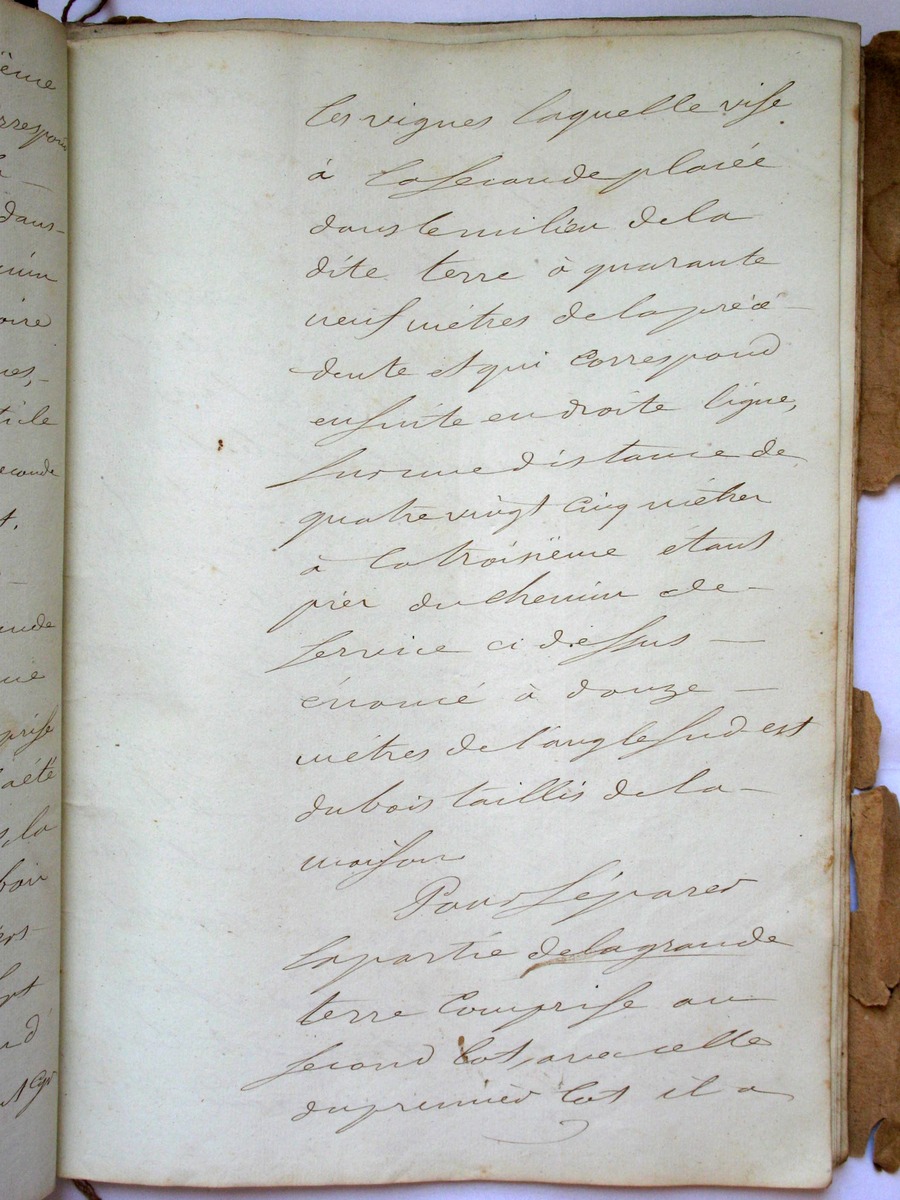 ème
dans
oire
ticle
econde
t.
prise
a été
s, la
bois
les vignes laquelle vise
à la seconde placée
dans le milieu de la
dite terre à quarante
neuf mètres de la précé
dente et qui correspond
ensuite en droite ligne,
sur une distance de
quatre vingt cinq mètres
à la troisième étant
près du chemin de
service ci dessus —
énoncé à douze —
mètres de l'angle sud-est
du bois taillis de la —
maison
Pour séparer
la partie de la grande
terre comprise au
second lot, avec celle
du premier lot il a